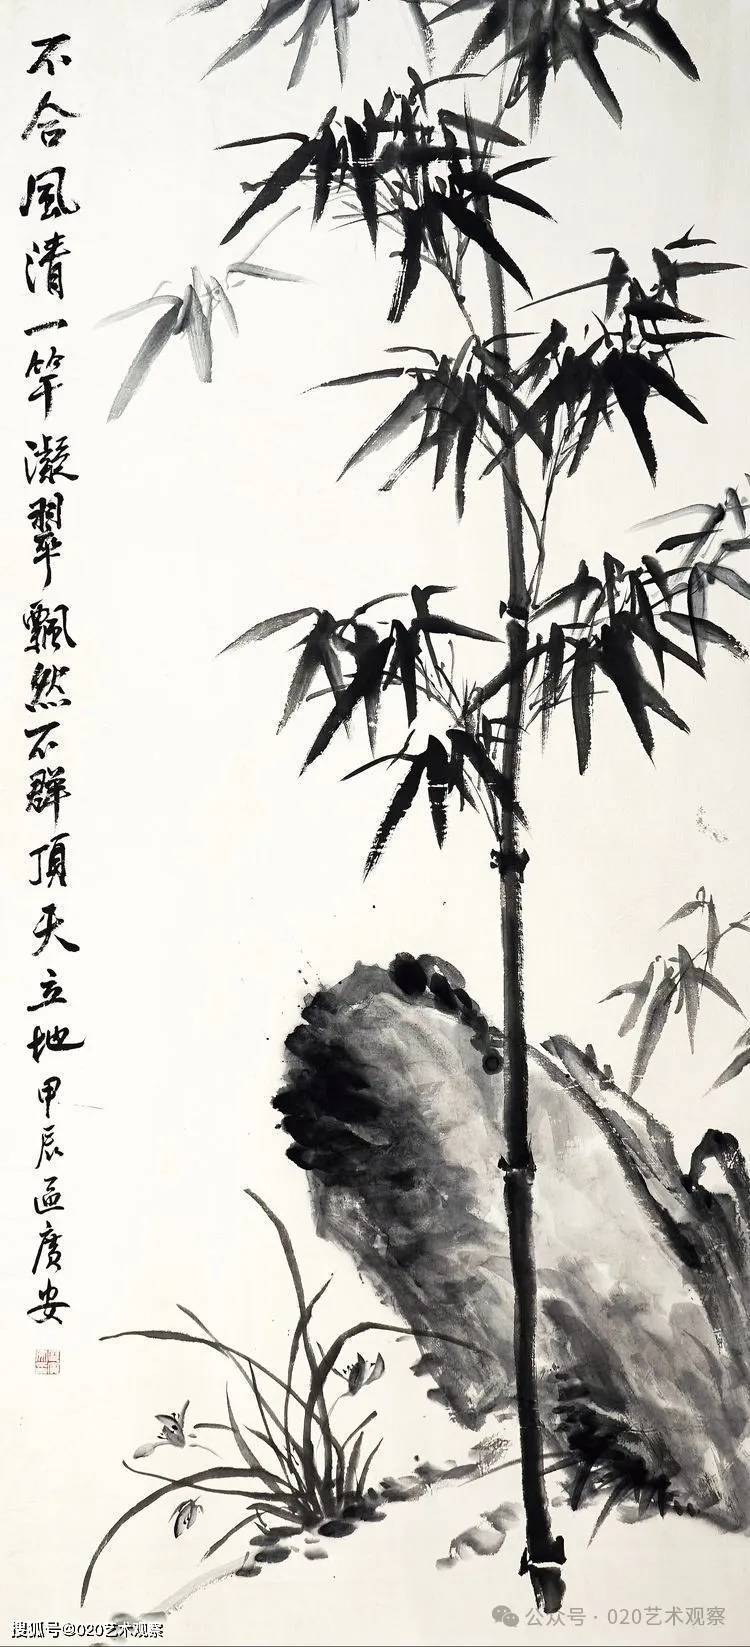 不合風清一竿凝翠飄然不群頂天立地甲辰區廣安
搜狐号@020艺术观察
公众号·020艺术观察